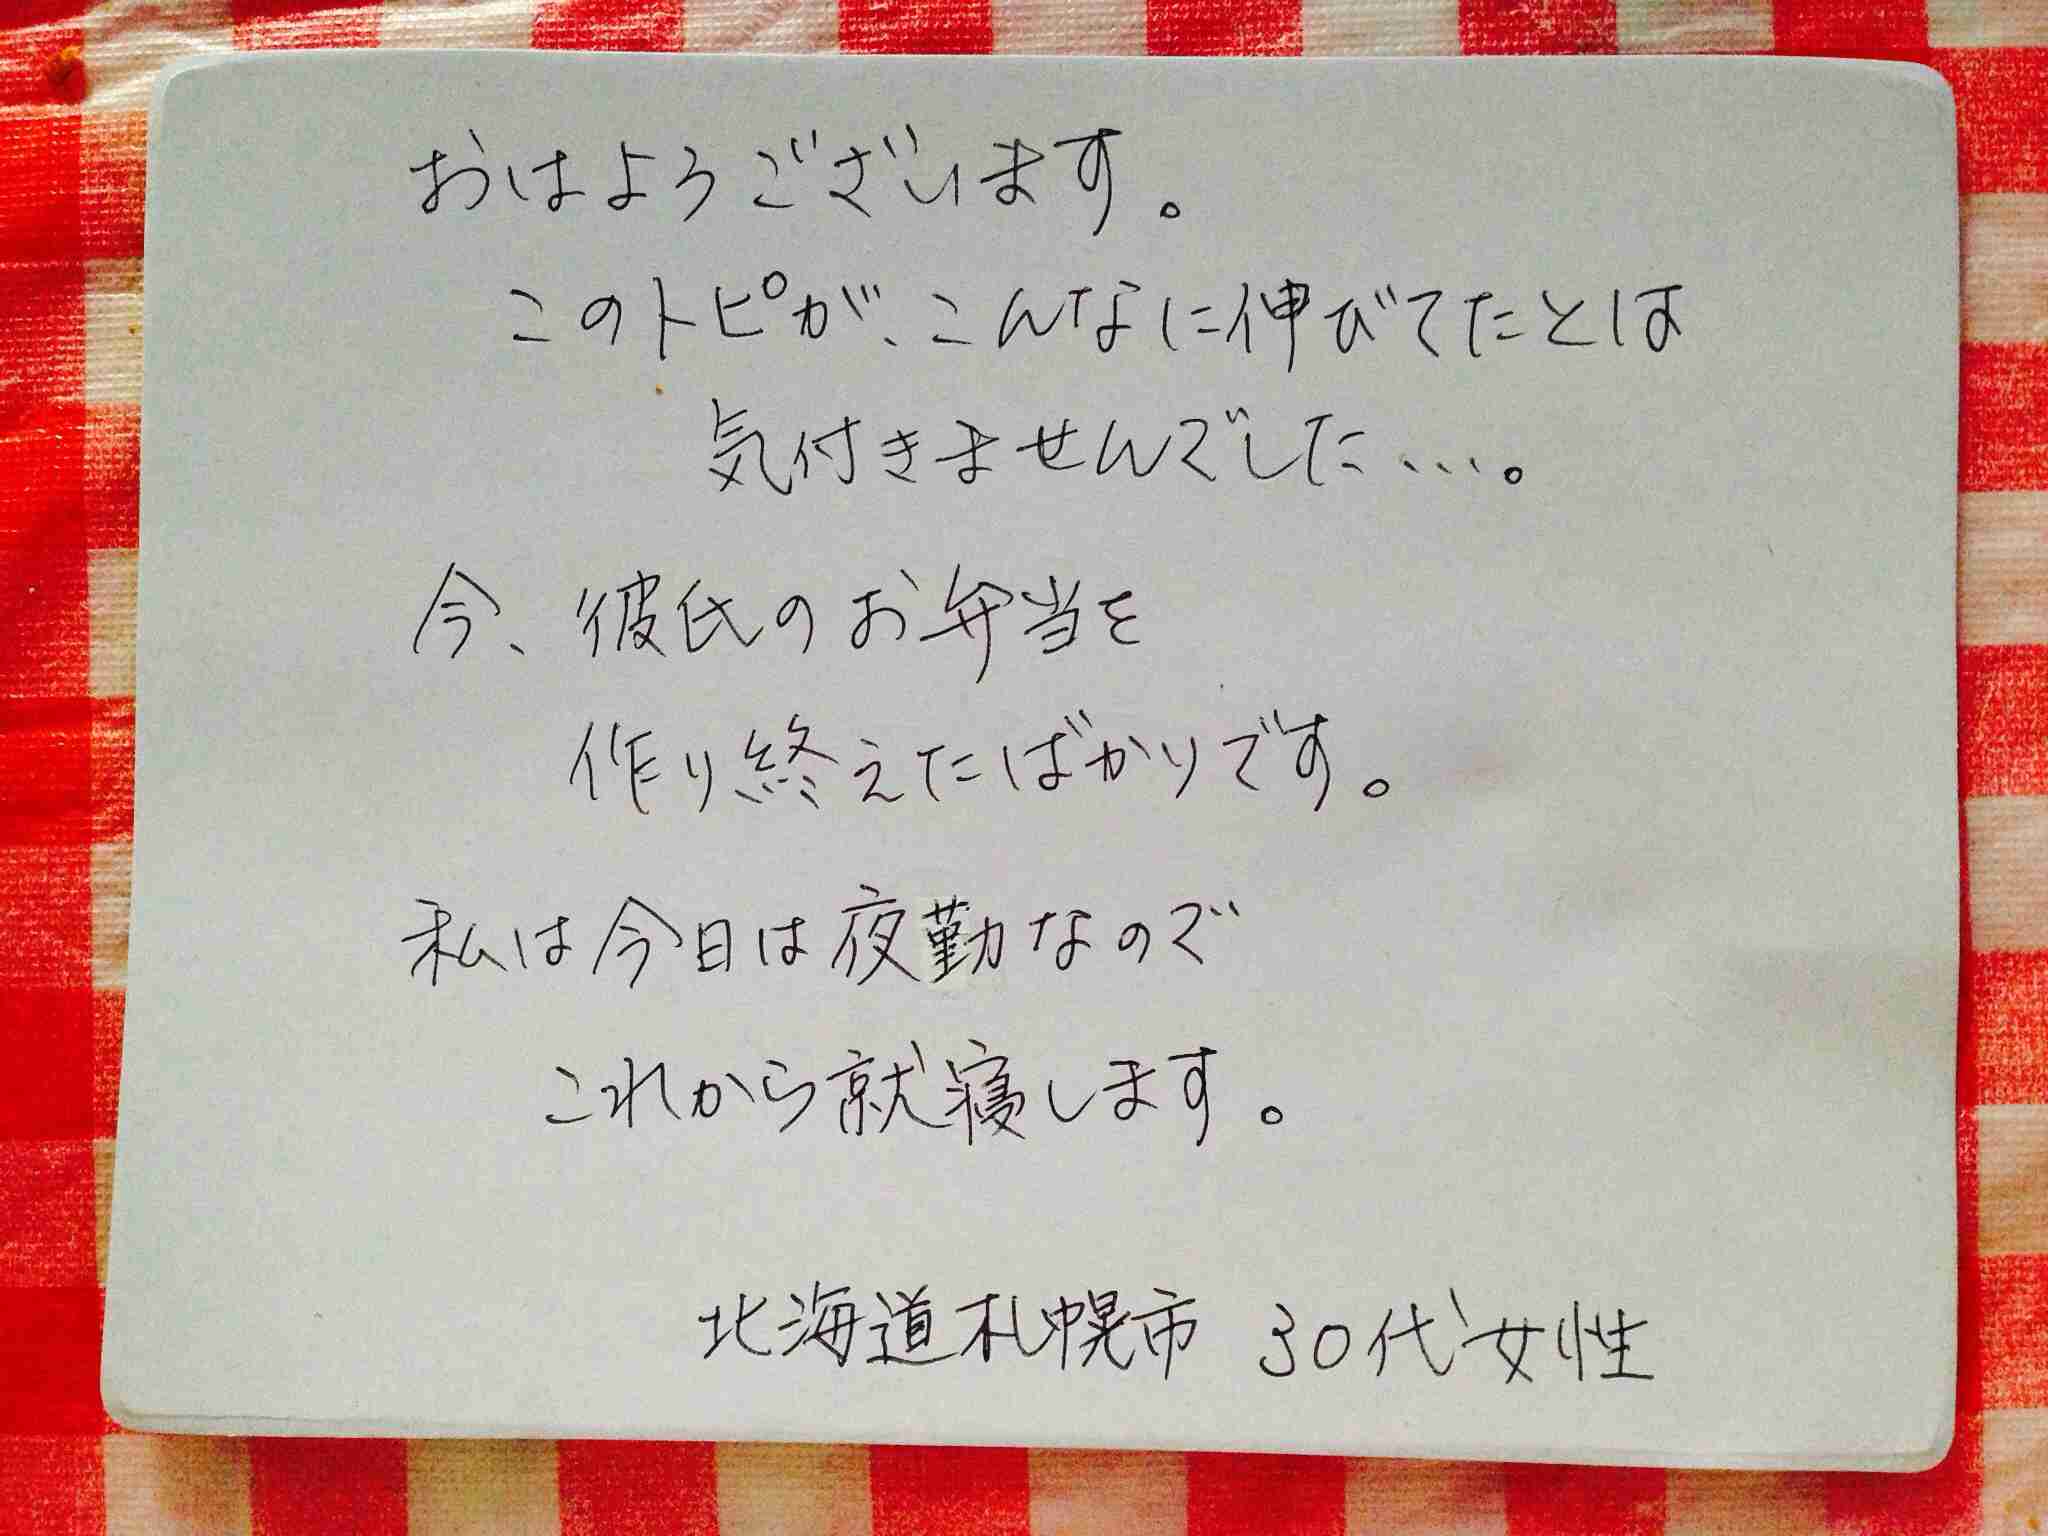 おはようございます。
このトピが、こんなに伸びてたとは
気付きませんでした、、、。
今、彼氏のお弁当を
作り終えたばかりです。
私は今日は夜勤なので
これから就寝します。
北海道札幌市 30代女性